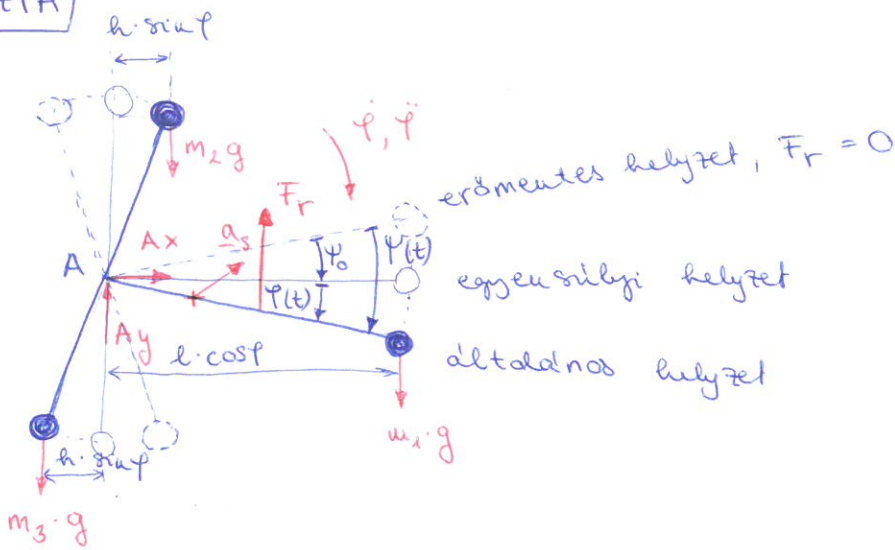 h·sinφ
m₂g
φ̇, φ̈
Fr
erőmentes helyzet, Fr = 0
Ax
as
ψ₀
ψ(t)
A
egyensúlyi helyzet
φ(t)
Ay
l·cosφ
általános helyzet
m₁·g
h·sinφ
m₃·g